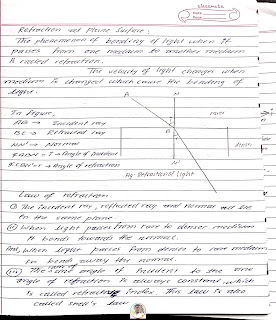 classmate
Date
Page
Refraction at Plane Surface:
The phenomenon of bending of light when it
passes from one medium to another medium
is called refraction.
The velocity of light changes when
medium is changed which cause the bending of
light.
A
N
In figure,
rare
AB → Incident ray
B
BC → Refracted ray
NN' → Normal
denser
∠ABN = i → Angle of incident
∠CBN' = r → Angle of refraction
N'
C
fig: Refraction of light
Law of refraction
The incident ray, refracted ray and normal all lie
in the same plane
When light passes from rare to denser medium
it bends towards the normal.
And, when light passes from denser to rare medium
it bends away the normal.
The sine angle of incident to the sine
angle of refraction is always constant which
is called refractive index. This law is also
called snell's law